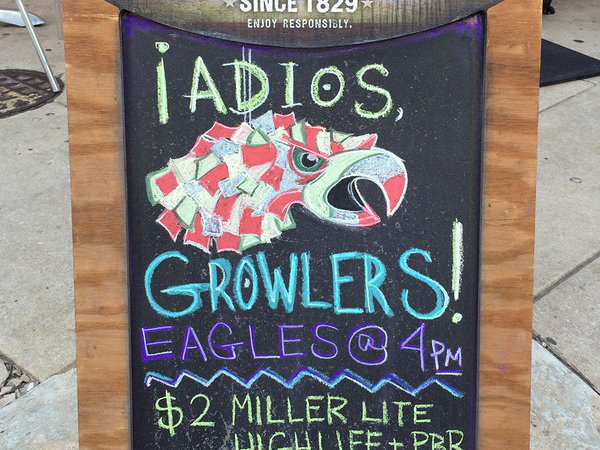 SINCE 1829
ENJOY RESPONSIBLY.
¡ADIOS,
GROWLERS!
EAGLES @ 4PM
$2 MILLER LITE
HIGH LIFE + PBR